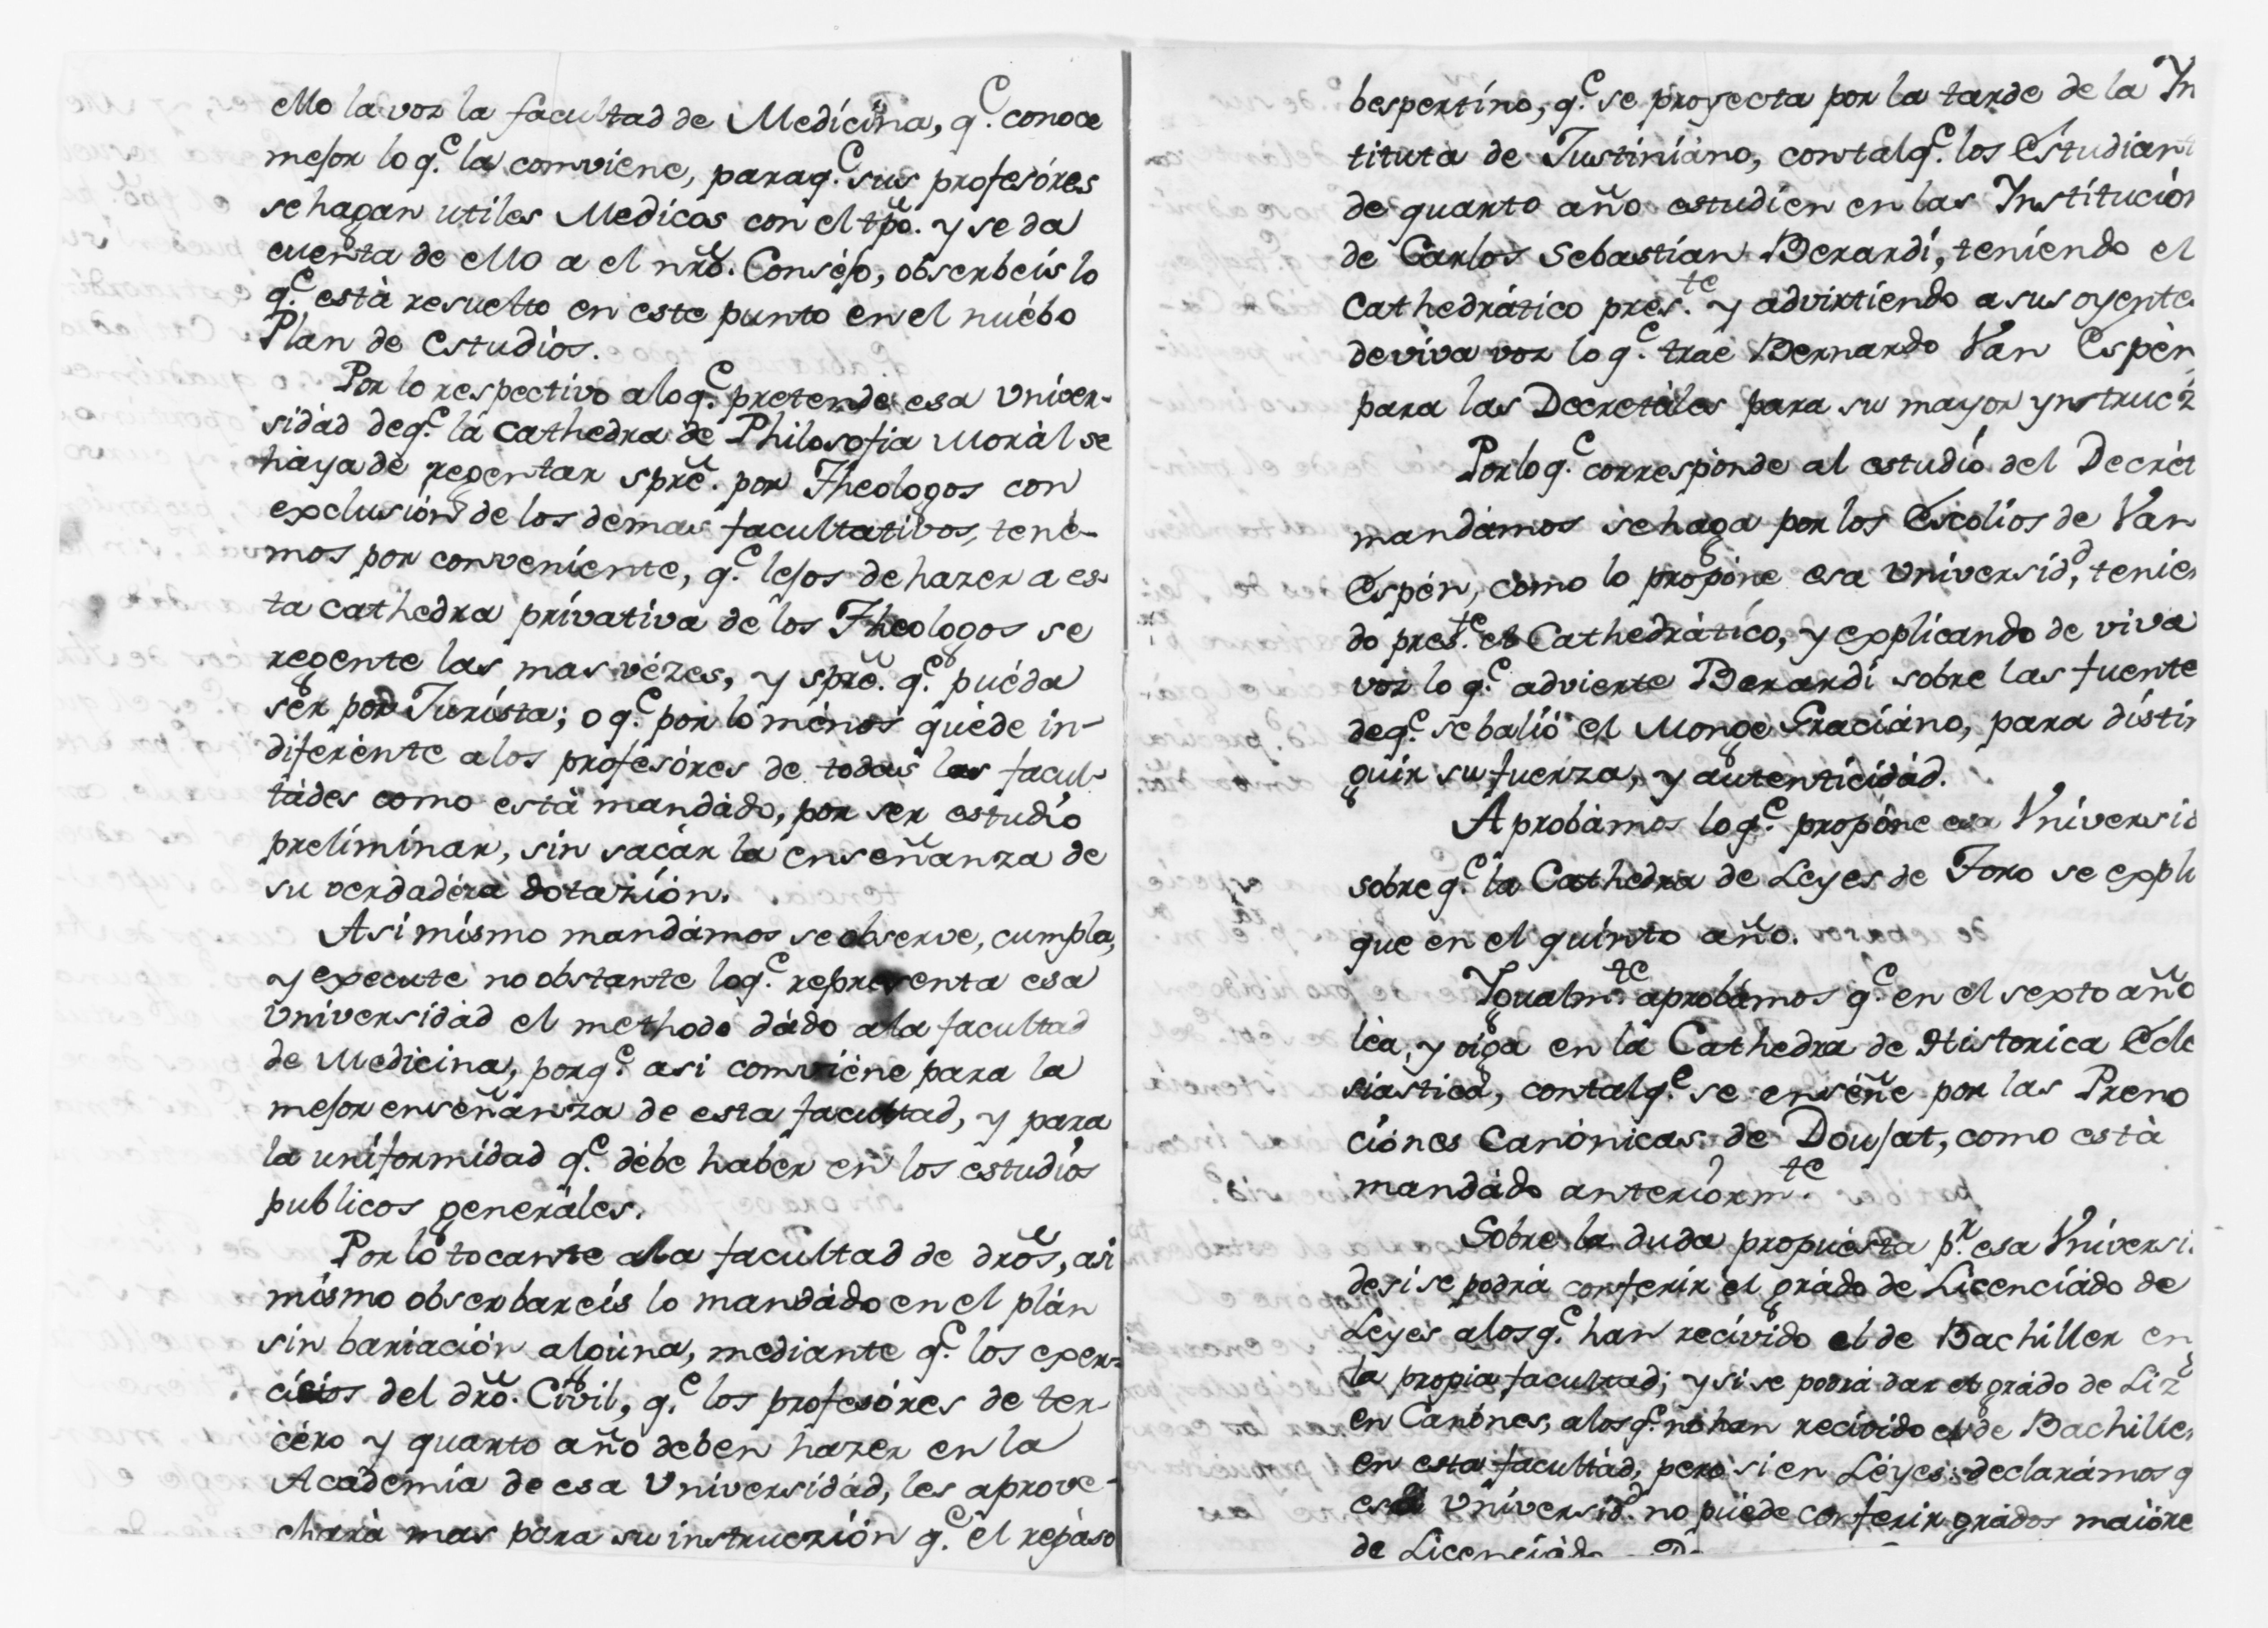 ello la voz la facultad de Medicina, q.e conoce
mejor lo q.e la comviene, paraq.e sus profesóres
se hagan utiles Medicos con el tpo. y se da
cuenta de ello a el nrõ. Conséjo, obserbeis lo
q.e està resuelto en este punto en el nuébo
Plan de Estudios.
Por lo respectivo alo q.e pretende esa Univer-
sidád deq.e la Cathedra de Philosofia Morál se
háya de regentar spre. por Theologos con
exclusión de los demas facultativos, tené-
mos por conveniente, q.e lejos de hazer a es-
ta cathedra privativa de los Theologos se
regente las mas vézes, y spre. q.e puéda
sér por Jurista; o q.e por lo ménos quéde in-
diferénte alos profesóres de todas las facul-
tádes como està mandádo, por ser estudio
preliminar, sin sacár la enseñanza de
su verdadéra dotazión.
Asi mismo mandámos se observe, cumpla,
y execute no obstante loq.e representa esa
Universidád el methodo dádo ala facultad
de Medicina, porq.e asi comviéne para la
mejor enseñanza de esta facultad, y para
la uniformidad q.e débe habér en los estudiós
publicos generáles.
Por lo tocante ala facultad de drõs, asi
mismo obserbareis lo mandádo en el plán
sin bariación algúna, mediante q.e los exer-
cicios del drõ. Civil, q.e los profesóres de ter-
céro y quarto año deben hazer en la
Académia de esa Universidád, les aprove-
charà mas para su instruczión q.e el repáso
bespertino, q.e se proyecta por la tarde de la Yn
tituta de Justiniáno, contalq.e los Estudiant
de quarto año estudien en las Ynstitución
de Carlos Sebastian Berardi, teniendo el
Cathedrático pres.te y advirtiendo a sus oyente
deviva voz lo q.e trae Bernardo Van Espén
para las Decretáles para su mayor ynstrucz
Porloq.e corresponde al estudio del Decrét
mandámos se haga por los Escolios de Van
Espén, como lo propóne esa Universid.d, tenien
do pres.te el Cathedrático, y explicando de viva
voz lo q.e advierte Berardi sobre las fuente
deq.e se balió el Monge Graciáno, para distin
guir su fuerza, y autenticidád.
Aprobámos loq.e propóne esa Universid
sobre q.e la Cathedra de Leyes de Toro se expli
que en el quinto año.
Ygualm.te aprobámos q.e en el sexto año
léa, y oiga en la Cathedra de Historica Ecle
siastica, contalq.e se enséñe por las Preno
ciónes Canónicas de Doujat, como està
mandádo anteriorm.te
Sobre la duda propuésta p.r esa Universi.
desi se podrá conferir el grádo de Licenciádo de
Leyes alosq.e han recivido el de Bachiller en
la propia facultad; y si se podrá dar el grádo de Liz
en Canónes, alos q.e no han recivido el de Bachiller
en esta facultád, pero si en Léyes: declarámos q
esa Universid.d no puéde conferir grádos maióre
de Licenciádo